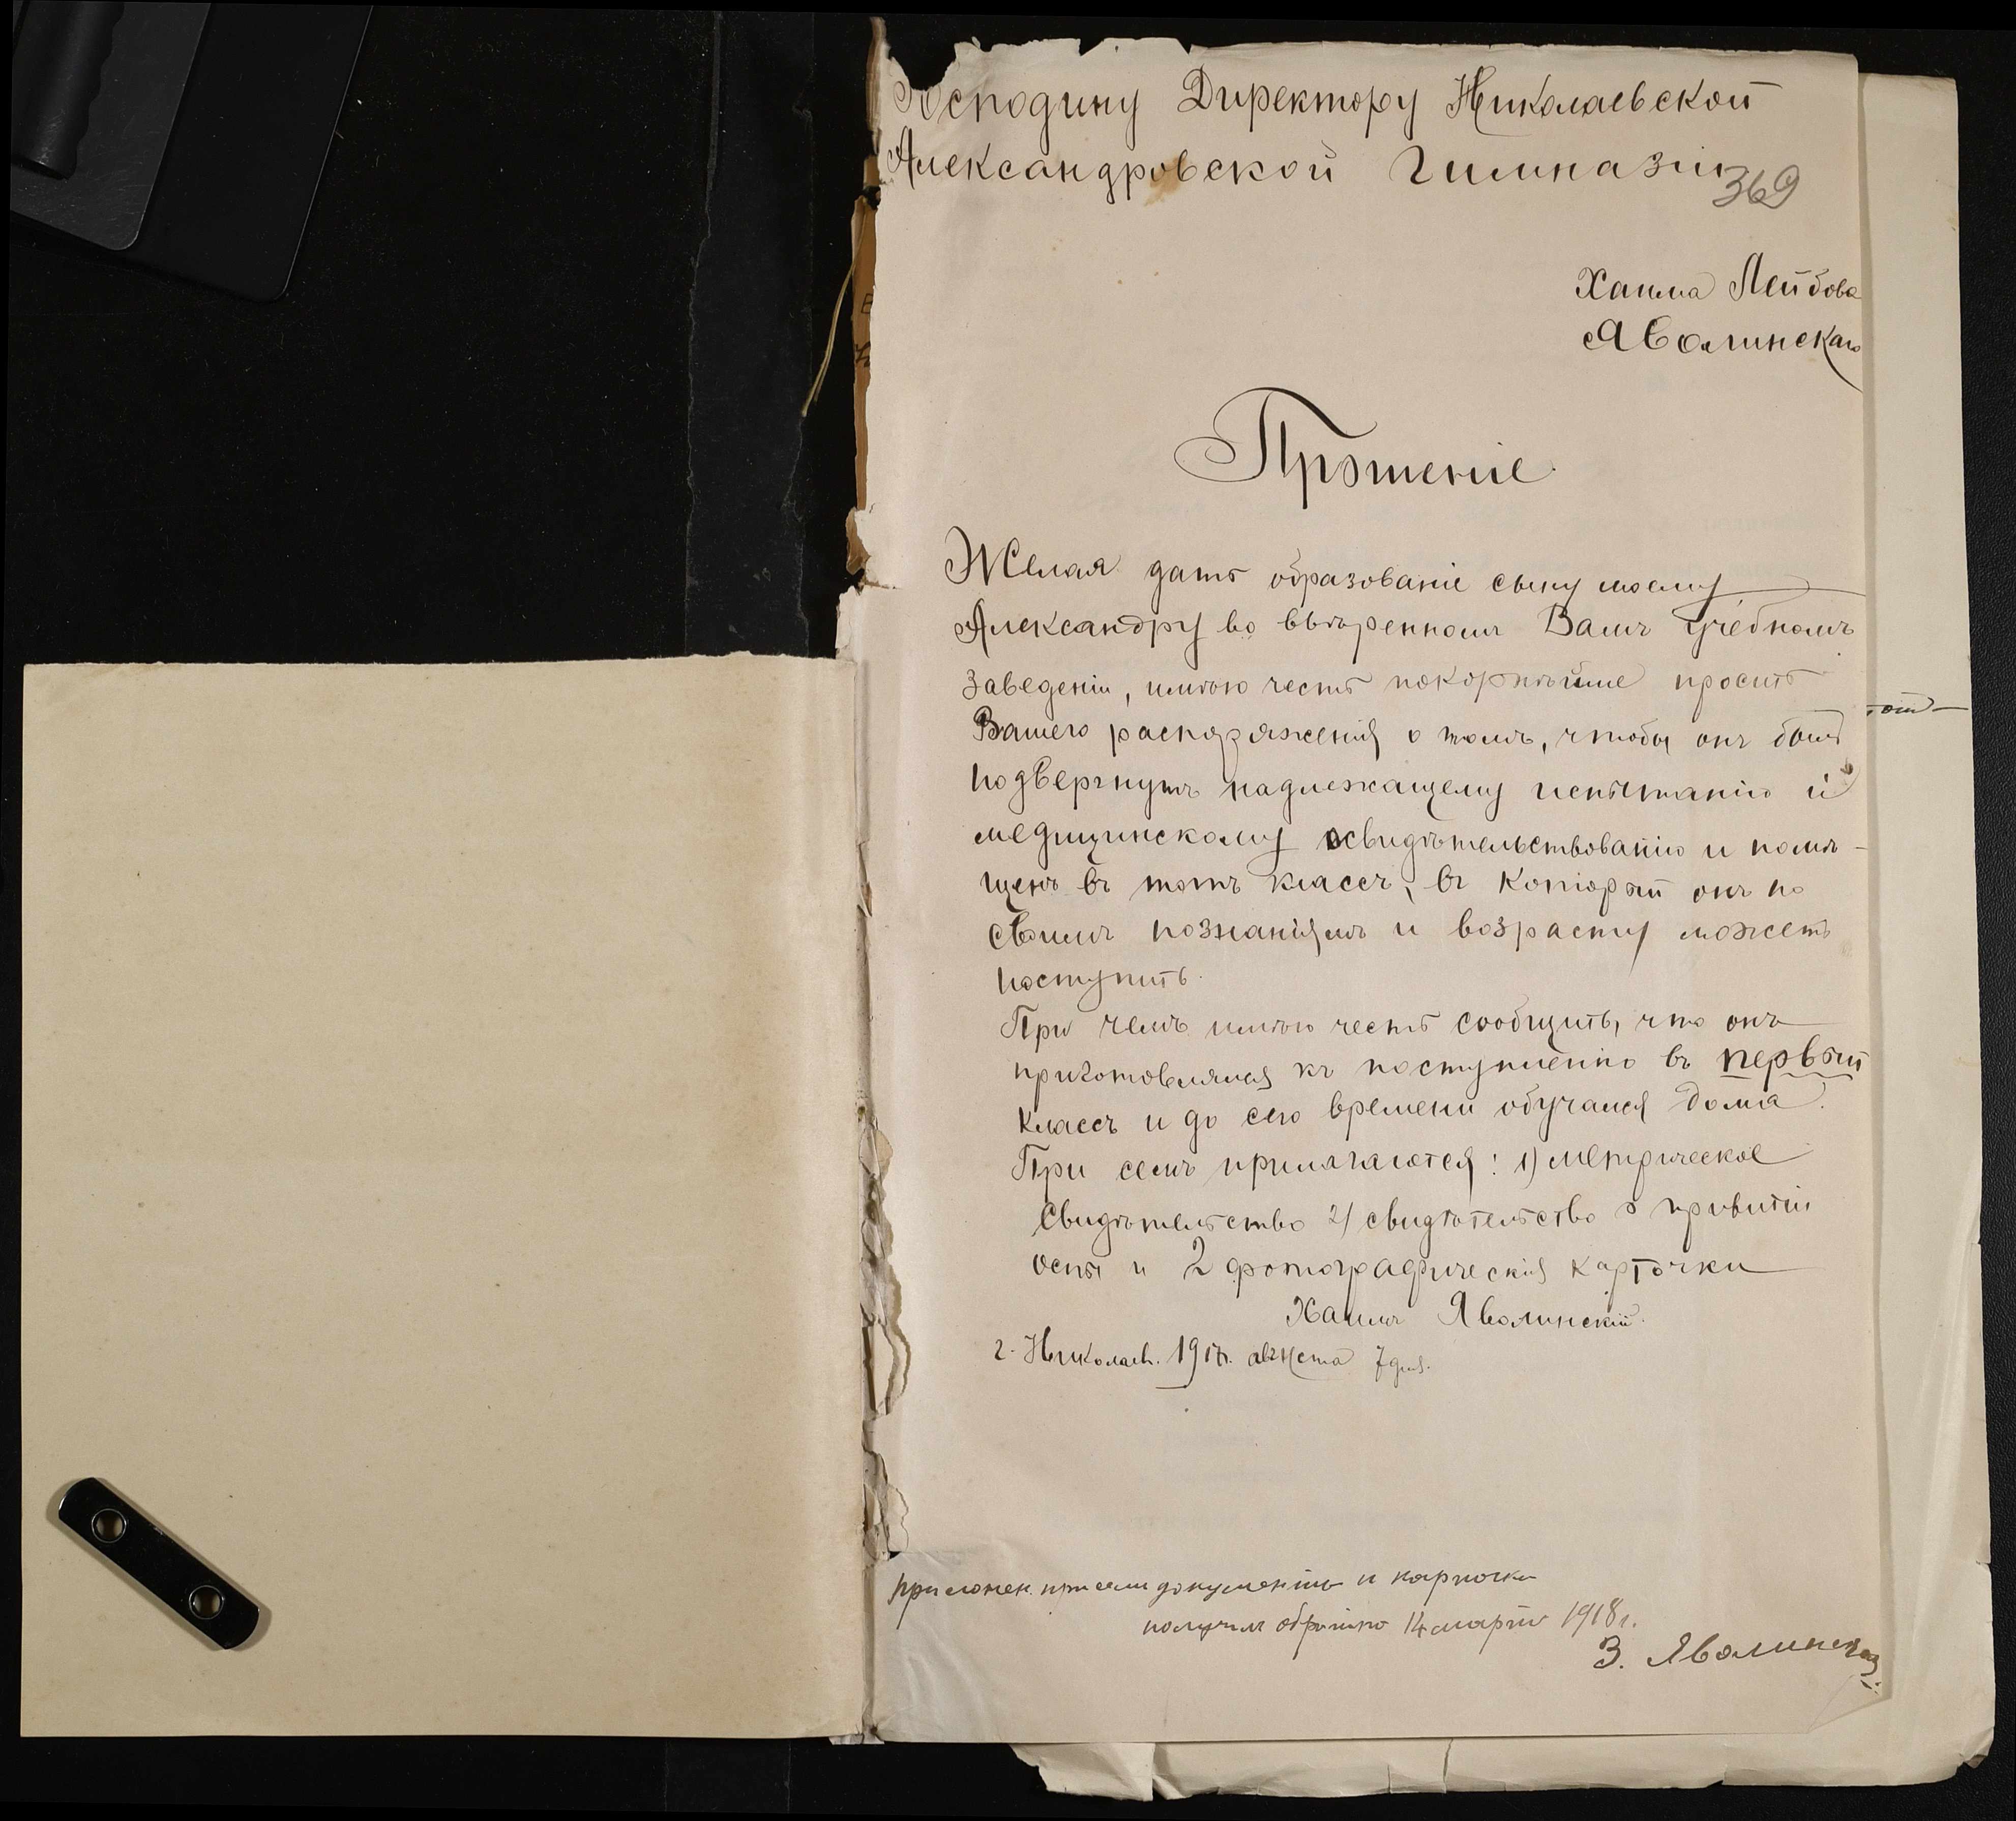 Господину Директору Николаевской
Александровской Гимназіи
369
Хаима Лейбова
Яволинскаго
Прошеніе.
Желая дать образованіе сыну моему
Александру во ввѣренномъ Вамъ учебномъ
заведеніи, имѣю честь покорнѣйше просить
Вашего распоряженія о томъ, чтобы онъ былъ
подвергнутъ надлежащему испытанію и
медицинскому освидѣтельствованію и помѣ-
щенъ въ тотъ классъ, въ который онъ по
своимъ познаніямъ и возрасту можетъ
поступить.
При чемъ имѣю честь сообщить, что онъ
приготовлялся къ поступленію въ первый
классъ и до сего времени обучался дома.
При семъ прилагаются: 1) метрическое
свидѣтельство 2) свидѣтельство о привитіи
оспы и 2 фотографическія карточки
Хаимъ Яволинскій.
г. Николаев. 1917. августа 7 дня.
приложен. при семъ документы и карточки
получил обратно 14 марта 1918 г.
З. Яволинская